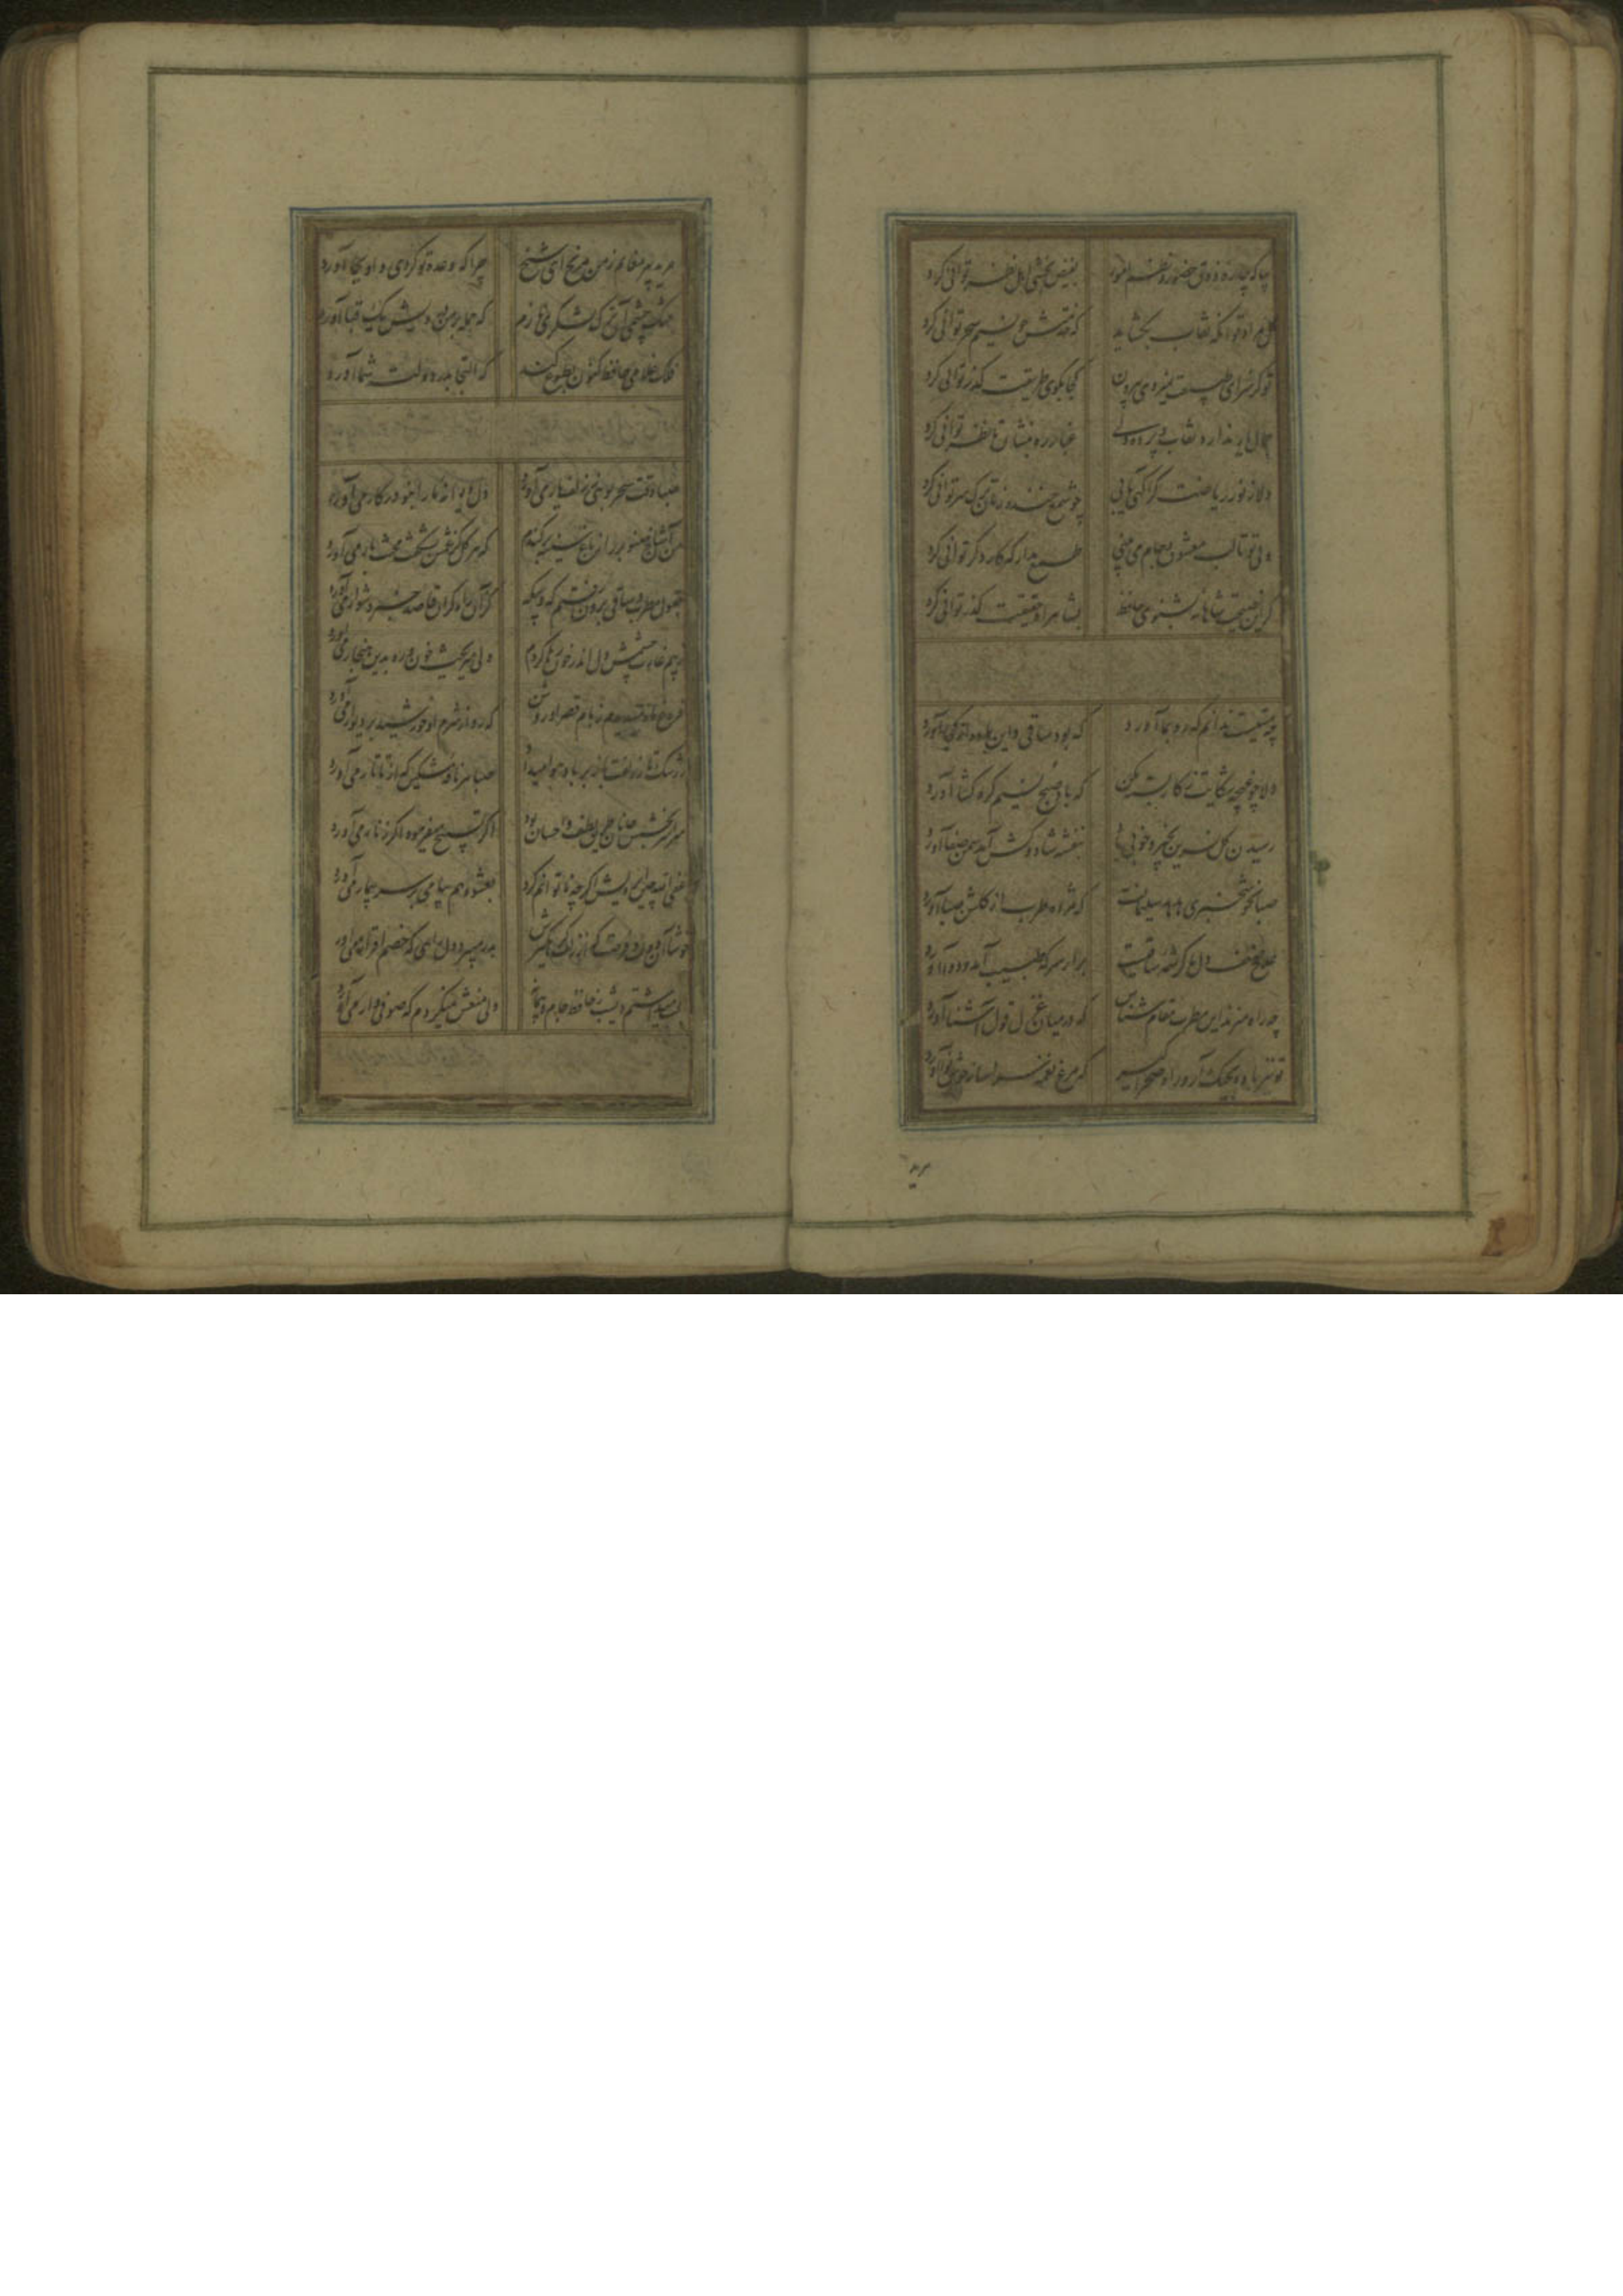 بیا که چاره ذوق حضور و نظم امور بفیض بخشی اهل نظر توانی کرد
گل مراد تو آنگه نقاب بگشاید که خدمتش چو نسیم سحر توانی کرد
تو کز سرای طبیعت نمیروی بیرون کجا بکوی طریقت گذر توانی کرد
جمال یار ندارد نقاب و پرده ولی غبار ره بنشان تا نظر توانی کرد
دلا ز نور ریاضت گر آگهی یابی چو شمع خنده زنان ترک سر توانی کرد
ولی تو تا لب معشوق و جام می طمع مدار که کار دگر توانی کرد
گر این نصیحت شاهانه بشنوی حافظ بشاهراه حقیقت گذر توانی کرد
چه مستیست ندانم که رو بما آورد که بود ساقی و این باده از کجا آورد
دلا چو غنچه شکایت ز کار بسته مکن که باد صبح نسیم گره گشا آورد
رسیدن گل نسرین بخیر و خوبی باد بنفشه شاد و کش آمد سمن صفا آورد
صبا بخوشخبری هدهد سلیمانست که مژده طرب از گلشن صبا آورد
علاج ضعف دل ما کرشمه ساقیست برآر سر که طبیب آمد و دوا آورد
چه راه میزند این مطرب مقام شناس که در میان غزل قول آشنا آورد
تو نیز باده بچنگ آر و راه صحرا گیر که مرغ نغمه سرا ساز خوش نوا آورد
مرید
مرید پیر مغانم ز من مرنج ای شیخ چرا که وعده تو کردی و او بجا آورد
بتنگ چشمی آن ترک لشکری نازم که حمله بر من درویش یک قبا آورد
فلک غلامی حافظ کنون بطوع کند که التجا بدر دولت شما آورد
صبا وقت سحر بویی ز زلف یار می آورد دل دیوانه ما را بنو در کار می آورد
من آن شاخ صنوبر را ز باغ سینه برکندم که هر گل کز غمش بشکفت محنت بار می آورد
بقول مطرب و ساقی برون رفتم گه و بیگه کز آن راه گران قاصد خبر دشوار می آورد
ز بیم غارت چشمش دل اندر خون رها کردم ولی میریخت خون و ره بدین هنجار می آورد
فروغ ماه میدیدم ز بام قصر او روشن که رو از شرم او خورشید بر دیوار می آورد
سراسر بخشش جانان طریق لطف و احسان بود اگر تسبیح میفرمود اگر زنار می آورد
عفی الله چین ابرویش اگر چه ناتوانم کرد بعشوه هم پیامی بر سر بیمار می آورد
خوشا آن وقت و آن ساعت که آن زلف گره گیرش بدزدید دل که خصم اقرار می آورد
ولی منعش نمیکردم که صوفی وار می آورد